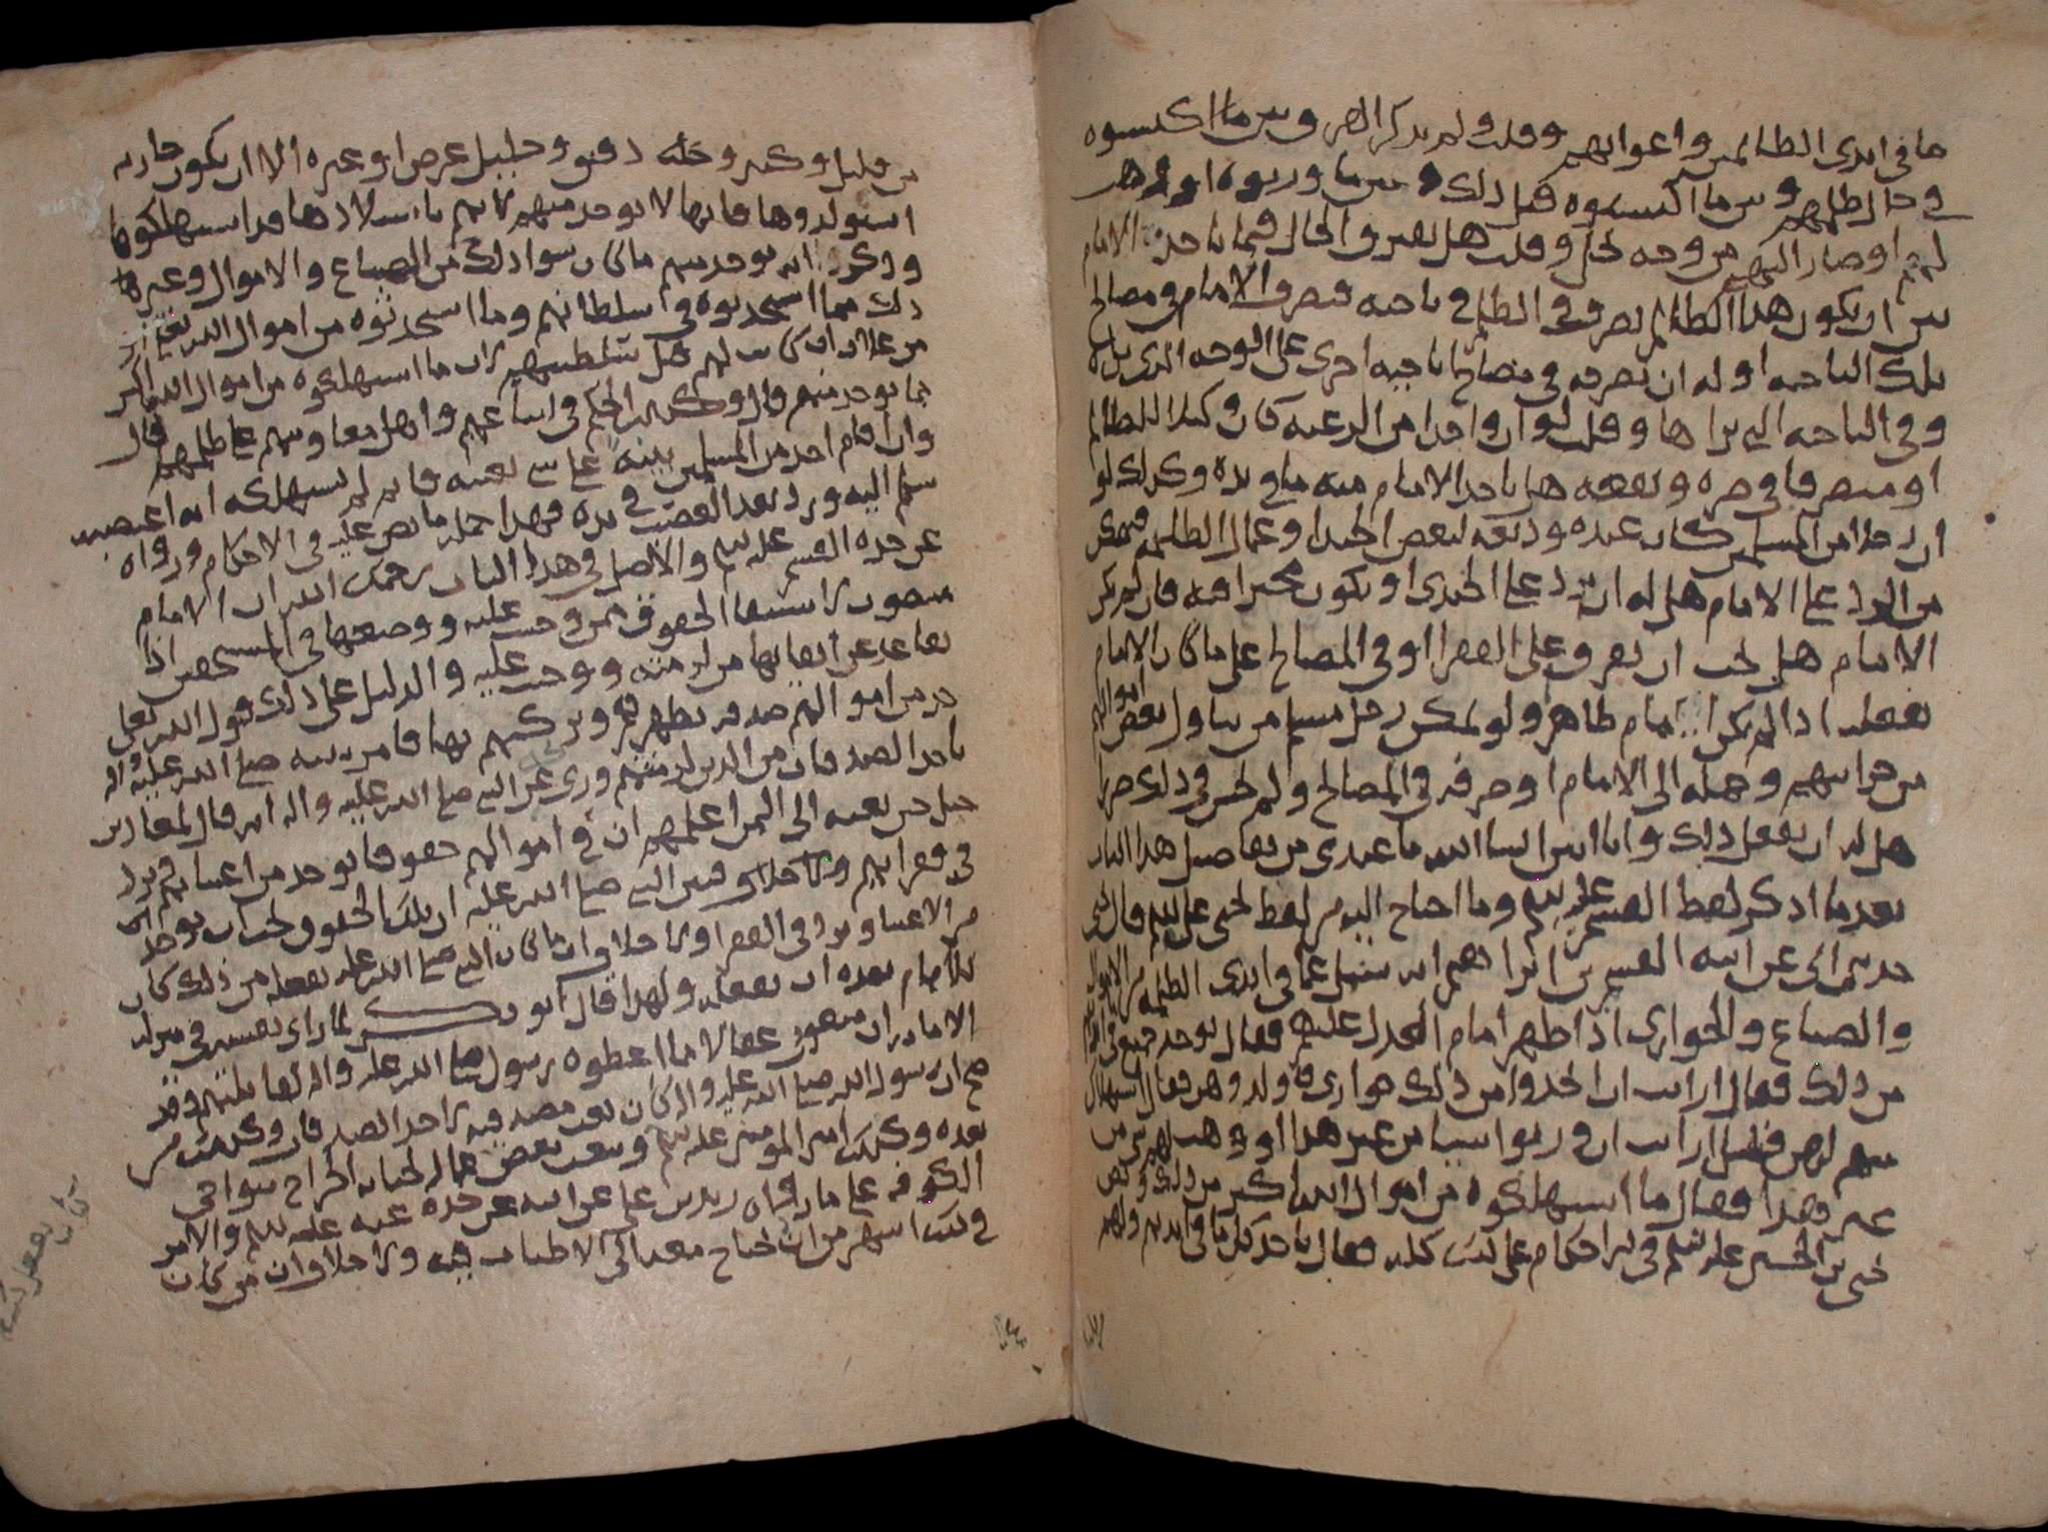 ما في ايدى الظالمين واعوانهم وقلت ولم يذكر الفرق بين ما اكتسبوه
في حال ظلمهم وبين ما اكتسبوه قبل ذلك وبين ما ورثوه او وهب
لهم او صار اليهم من وجه يحل وقلت هل يفترق الحال فيما ياخذه الامام
بين ان يكون هذا الظالم تصرف في الظلم في ناحيه فيصرف الامام في مصالح
تلك الناحيه او له ان يصرفه في مصالح ناحيه اخرى على الوجه الذي يراه
وفي الناحيه التي يراها وقلت لو ان واحدا من الرعيه كان وكيلا للظالم
او متصرفا في صره ونفعه هل ياخذ الامام منه ما في يده وكذلك لو
ان رجلا من المسلمين كان عنده وديعه لبعض الجند او عمال الظلمه فتمكن
من الرد على الامام هل له ان يرد على الجندى او يكون مخيرا فيه فان لم يكن
الامام هل يجب ان يفرق على الفقرا او في المصالح على ما كان الامام
يفعله اذا لم يكن امام ظاهر ولو تمكن رجل مسلم من تناول بعض اموالهم
من خزانتهم وحمله الى الامام او صرفه في المصالح ولم يخش في ذلك ضررا
هل له ان يفعل ذلك وانا ابين ان شا الله ما عندى من تفاصيل هذا الباب
بعد ما اذكر لفظ القسم عليه السلم وما احتاج اليه من لفظ يحيى عليه السلم قال يحيى
حدثنى ابي عن ابيه القسم بن ابراهيم انه سئل عما في ايدى الظلمه من الاموال
والضياع والجواري اذا ظهر امام العدل عليهم فقال يوخذ جميع ما في ايديهم
من ذلك فقال ارايت ان اتخذوا من ذلك جواري فاولدوهن فقال استهلاك
منهم لهن فقيل ارايت ان ورثوا شيا من غير هذا او وهب لهم شى من
غيرهم فهذا فقال ما استهلكوه من اموال الله اكثر من ذلك ونص
يحيى بن الحسين عليه السلم في الاحكام على ذلك كله فقال ياخذ كل ما في ايديهم ولهم
من قليل وكثير وجله دقيق وجليل عرض او غيره الا ان يكون جاريه
استولدوها فانها لا توخذ منهم لانهم باستيلادها قد استهلكوها
وذكر انه يوخذ منهم ما كان سوا ذلك من الضياع والاموال وغيرها
ذلك مما استحدثوه في سلطانهم وما استحدثوه من اموال الله تعالى
من غلات ان كانت لهم قبل تسلطهم لان ما استهلكوه من اموال الله اكثر
مما يوخذ منهم قال وكذلك الحكم في اتباعهم واهل معاونتهم على ظلمهم قال
وان اقام احد من المسلمين بينه على شي بعينه فانه لم يستهلكه انه اغتصبه
سلم اليه ورد بعد الغصب في يده فهذا جمله ما نص عليه في الاحكام ورواه
عن جده القسم عليه السلم والاصل في هذا الباب رحمك الله ان الامام
منصوب لاستيفا الحقوق ممن وجبت عليه ووضعها في المستحقين اذا
تقاعد عن ايفايها من لزمته ووجبت عليه والدليل على ذلك قول الله تعالى
خذ من اموالهم صدقه تطهرهم وتزكيهم بها فامر نبيه صلى الله عليه واله
باخذ الصدقات من الذين لزمتهم وروى عن النبي صلى الله عليه واله انه قال لمعاذ بن
جبل حين بعثه الى اليمن اعلمهم ان في اموالهم حقوقا توخذ من اغنيايهم وترد
في فقرايهم ولا خلاف بين النبي صلى الله عليه ان تلك الحقوق يجب ان توخذ
من الاغنيا وترد في الفقرا ولا خلاف ان ما كان النبي صلى الله عليه يفعله من ذلك كان
للامام بعده ان يفعله ولهذا قال ابو بكر لما راى نفسه في منزله
الامامه ان منعوني عقالا مما اعطوه رسول الله صلى الله عليه واله لقاتلتهم وقد
صح ان رسول الله صلى الله عليه واله كان يبعث مصدقيه لاخذ الصدقات وكذلك من
بعده وكذلك امير المومنين عليه السلم وبعث بعض عماله لجبايه الخراج سواحى
الكوفه على ما رواه زيد بن علي عن ابيه عن جده عنه عليه السلم والامر
في ذلك اشهر من ان يحتاج معه الى الاطناب فيه ولا خلاف ان من كان